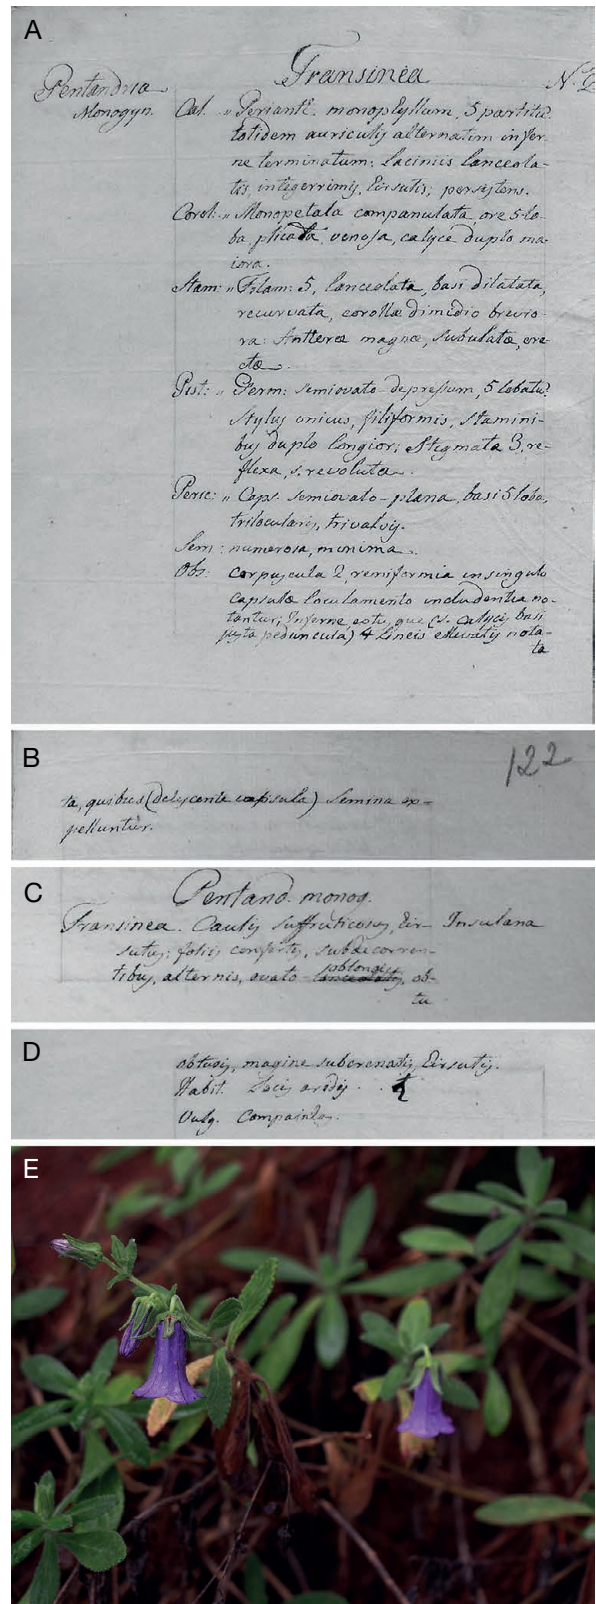 A
Fransinea
Pentandria
Monogyn.
Cal. „ Perianth. monophyllum, 5 partitū.
totidem auriculis alternatim infer-
ne terminatum: laciniis lanceola-
tis, integerrimis, hirsutis; persistens.
Corol: „ Monopetala campanulata, ore 5 lo-
ba plicata, venosa, calyce duplo ma-
iora.
Stam: „ Filam: 5, lanceolata, basi dilatata,
recurvata, corollæ dimidio brevio-
ra: Antheræ magnæ, subulatæ, ere-
ctæ.
Pist: „ Germ: semiovato-depressum, 5 lobatū:
stylus unicus, filiformis, stamini-
bus duplo longior; Stigmata 3, re-
flexa, s. revoluta.
Peric: „ Caps. semiovato-plana, basi 5 loba,
trilocularis, trivalvis.
Sem: numerosa, minima.
Obs: corpuscula 2, reniformia in singulo
capsulæ loculamento includentia no-
tantur; Inferne, que (s. calycis basi
juxta pedunculū) 4 lineis elevatis nota-
ta
B
122
ta, quibus (dehiscente capsula) semina ex-
pelluntur.
C
Pentand. monog.
Fransinea. Caulis suffruticosus, hir- Insulana
sutus: foliis confertis, subdecurren-
oblongis
tibus, alternis, ovato-lanceolatis, ob-
tu
D
obtusis, magine subcrenatis, hirsutis.
Habit. Locis aridis . . ♄
Vulg. Compainha.
E